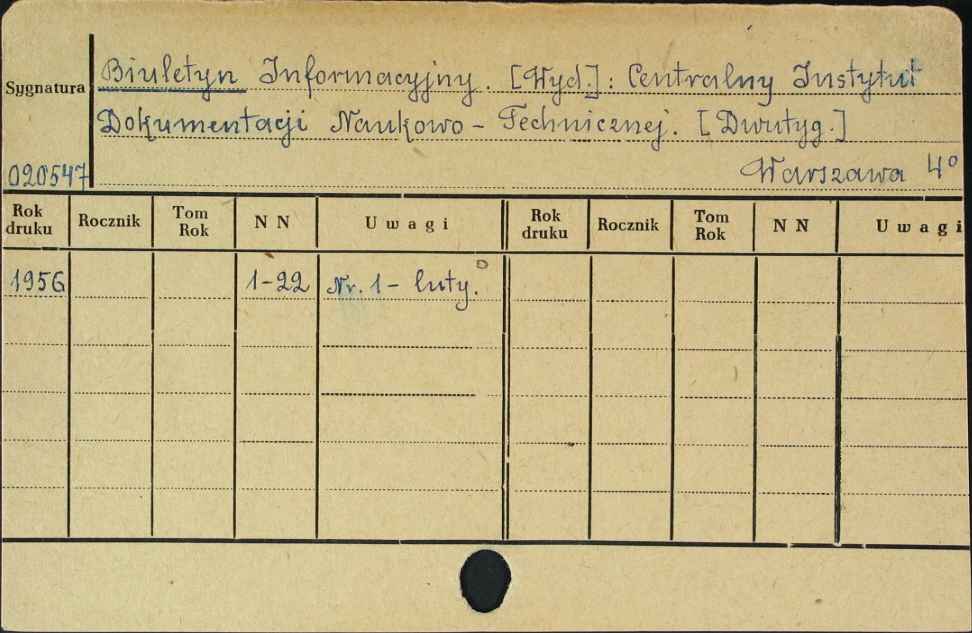 Biuletyn Informacyjny. [Wyd.]: Centralny Instytut
Sygnatura
Dokumentacji Naukowo - Technicznej. [Dwutyg.]
020547
Warszawa 4°
Rok druku Rocznik Tom Rok N N Uwagi Rok druku Rocznik Tom Rok N N Uwagi
1956 1-22 Nr. 1 - luty.